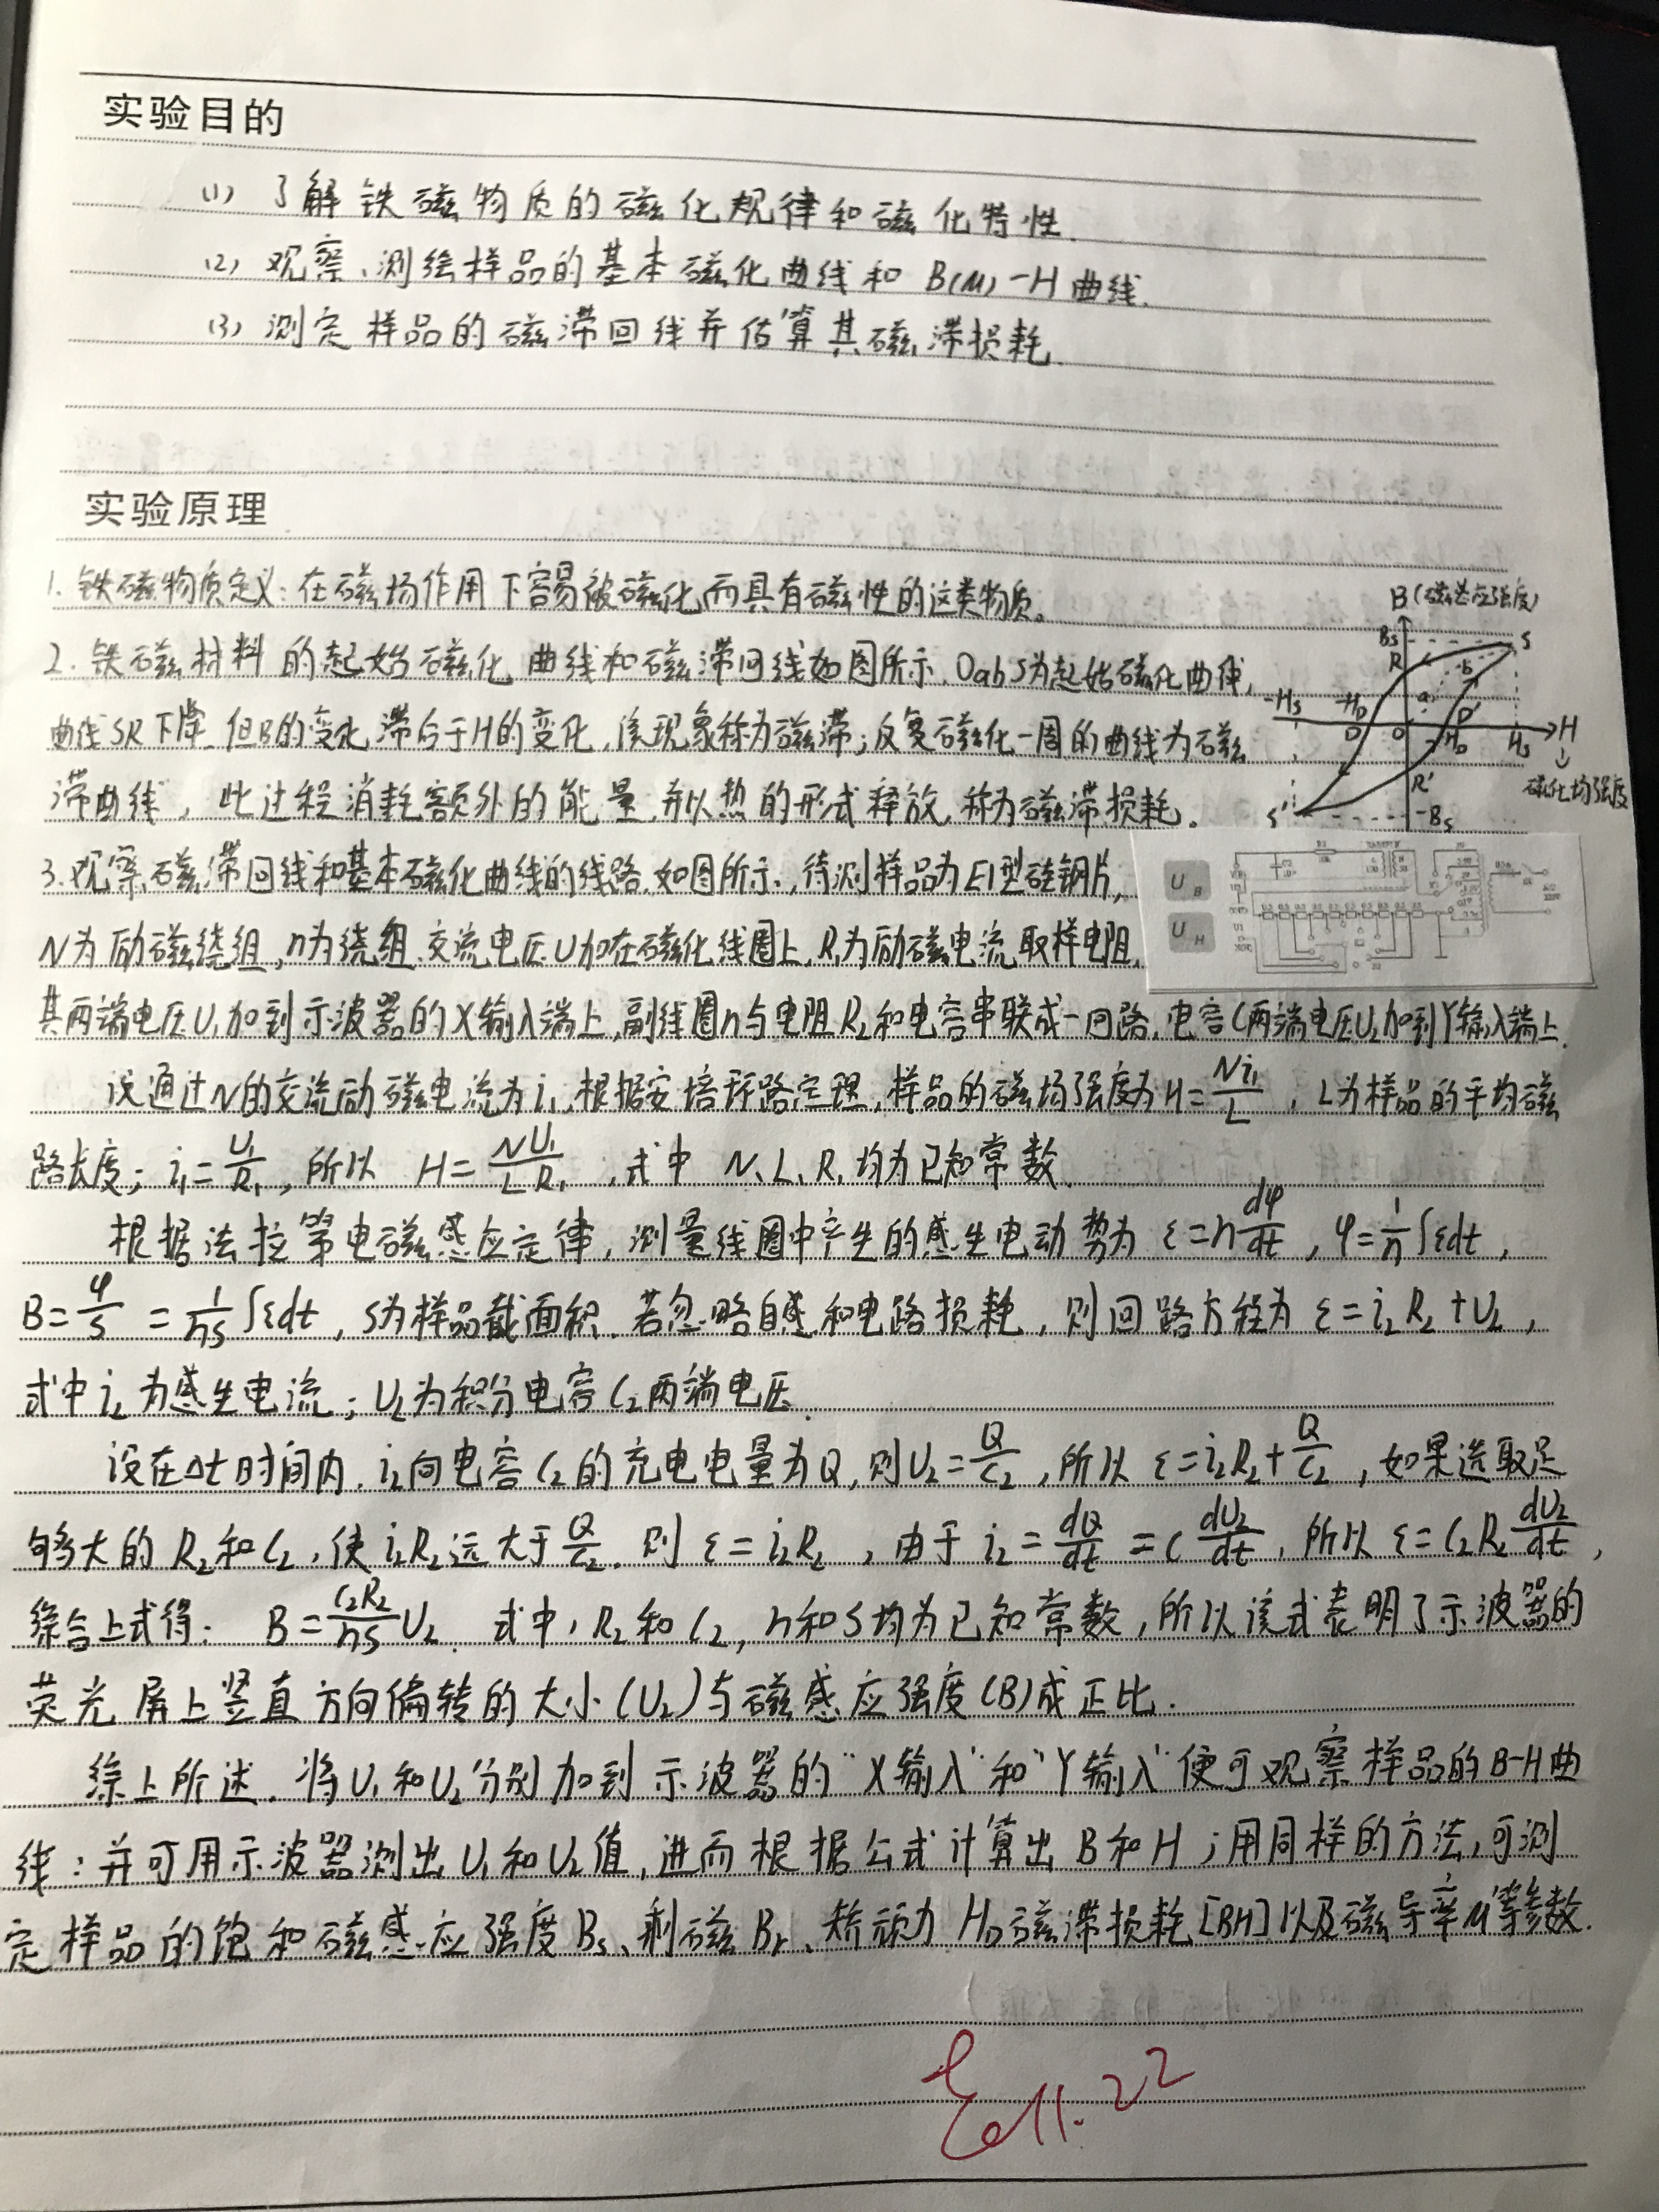 实验目的
(1) 了解铁磁物质的磁化规律和磁化特性.
(2) 观察、测绘样品的基本磁化曲线和 B(M)-H曲线.
(3) 测定样品的磁滞回线并估算其磁滞损耗.
实验原理
1. 铁磁物质定义: 在磁场作用下容易被磁化而具有磁性的这类物质。
2. 铁磁材料的起始磁化曲线和磁滞回线如图所示. OabS为起始磁化曲线,
曲线SR下降, 但B的变化滞后于H的变化, 该现象称为磁滞; 反复磁化一周的曲线为磁
滞曲线, 此过程消耗额外的能量, 并以热的形式释放, 称为磁滞损耗.
B (磁感应强度)
Bs
S
R
b
a
-Hs
-HD
D
O
D'
HD
Hs
H
磁化场强度
R'
S'
-Bs
3. 观察磁滞回线和基本磁化曲线的线路, 如图所示, 待测样品为EI型硅钢片,
N为励磁绕组, n为绕组. 交流电压U加在磁化线圈上, R₁为励磁电流取样电阻,
UB
UH
其两端电压U₁加到示波器的X输入端上, 副线圈n与电阻R₂和电容串联成一回路, 电容C两端电压U₂加到Y输入端上.
设通过N的交流励磁电流为i₁, 根据安培环路定理, 样品的磁场强度为H=Ni₁/L, L为样品的平均磁
路长度; i₁=U₁/R₁, 所以 H=NU₁/LR₁, 式中 N、L、R₁均为已知常数.
根据法拉第电磁感应定律, 测量线圈中产生的感生电动势为 ε=n dφ/dt, φ=1/n∫εdt,
B=φ/s=1/ns∫εdt, S为样品截面积. 若忽略自感和电路损耗, 则回路方程为 ε=i₂R₂+U₂,
式中i₂为感生电流; U₂为积分电容C₂两端电压.
设在Δt时间内, i₂向电容C₂的充电电量为Q, 则U₂=Q/C₂, 所以 ε=i₂R₂+Q/C₂, 如果选取足
够大的R₂和C₂, 使i₂R₂远大于Q/C₂, 则 ε=i₂R₂, 由于 i₂=dQ/dt=C dU₂/dt, 所以 ε=C₂R₂ dU₂/dt,
综合上式得: B=C₂R₂/ns U₂. 式中, R₂和C₂, n和S均为已知常数, 所以该式表明了示波器的
荧光屏上竖直方向偏转的大小(U₂)与磁感应强度(B)成正比.
综上所述, 将U₁和U₂分别加到示波器的"X输入"和"Y输入"便可观察样品的B-H曲
线: 并可用示波器测出U₁和U₂值, 进而根据公式计算出B和H; 用同样的方法, 可测
定样品的饱和磁感应强度Bs、剩磁Br、矫顽力HD、磁滞损耗[BH]以及磁导率μ等参数.
11.22